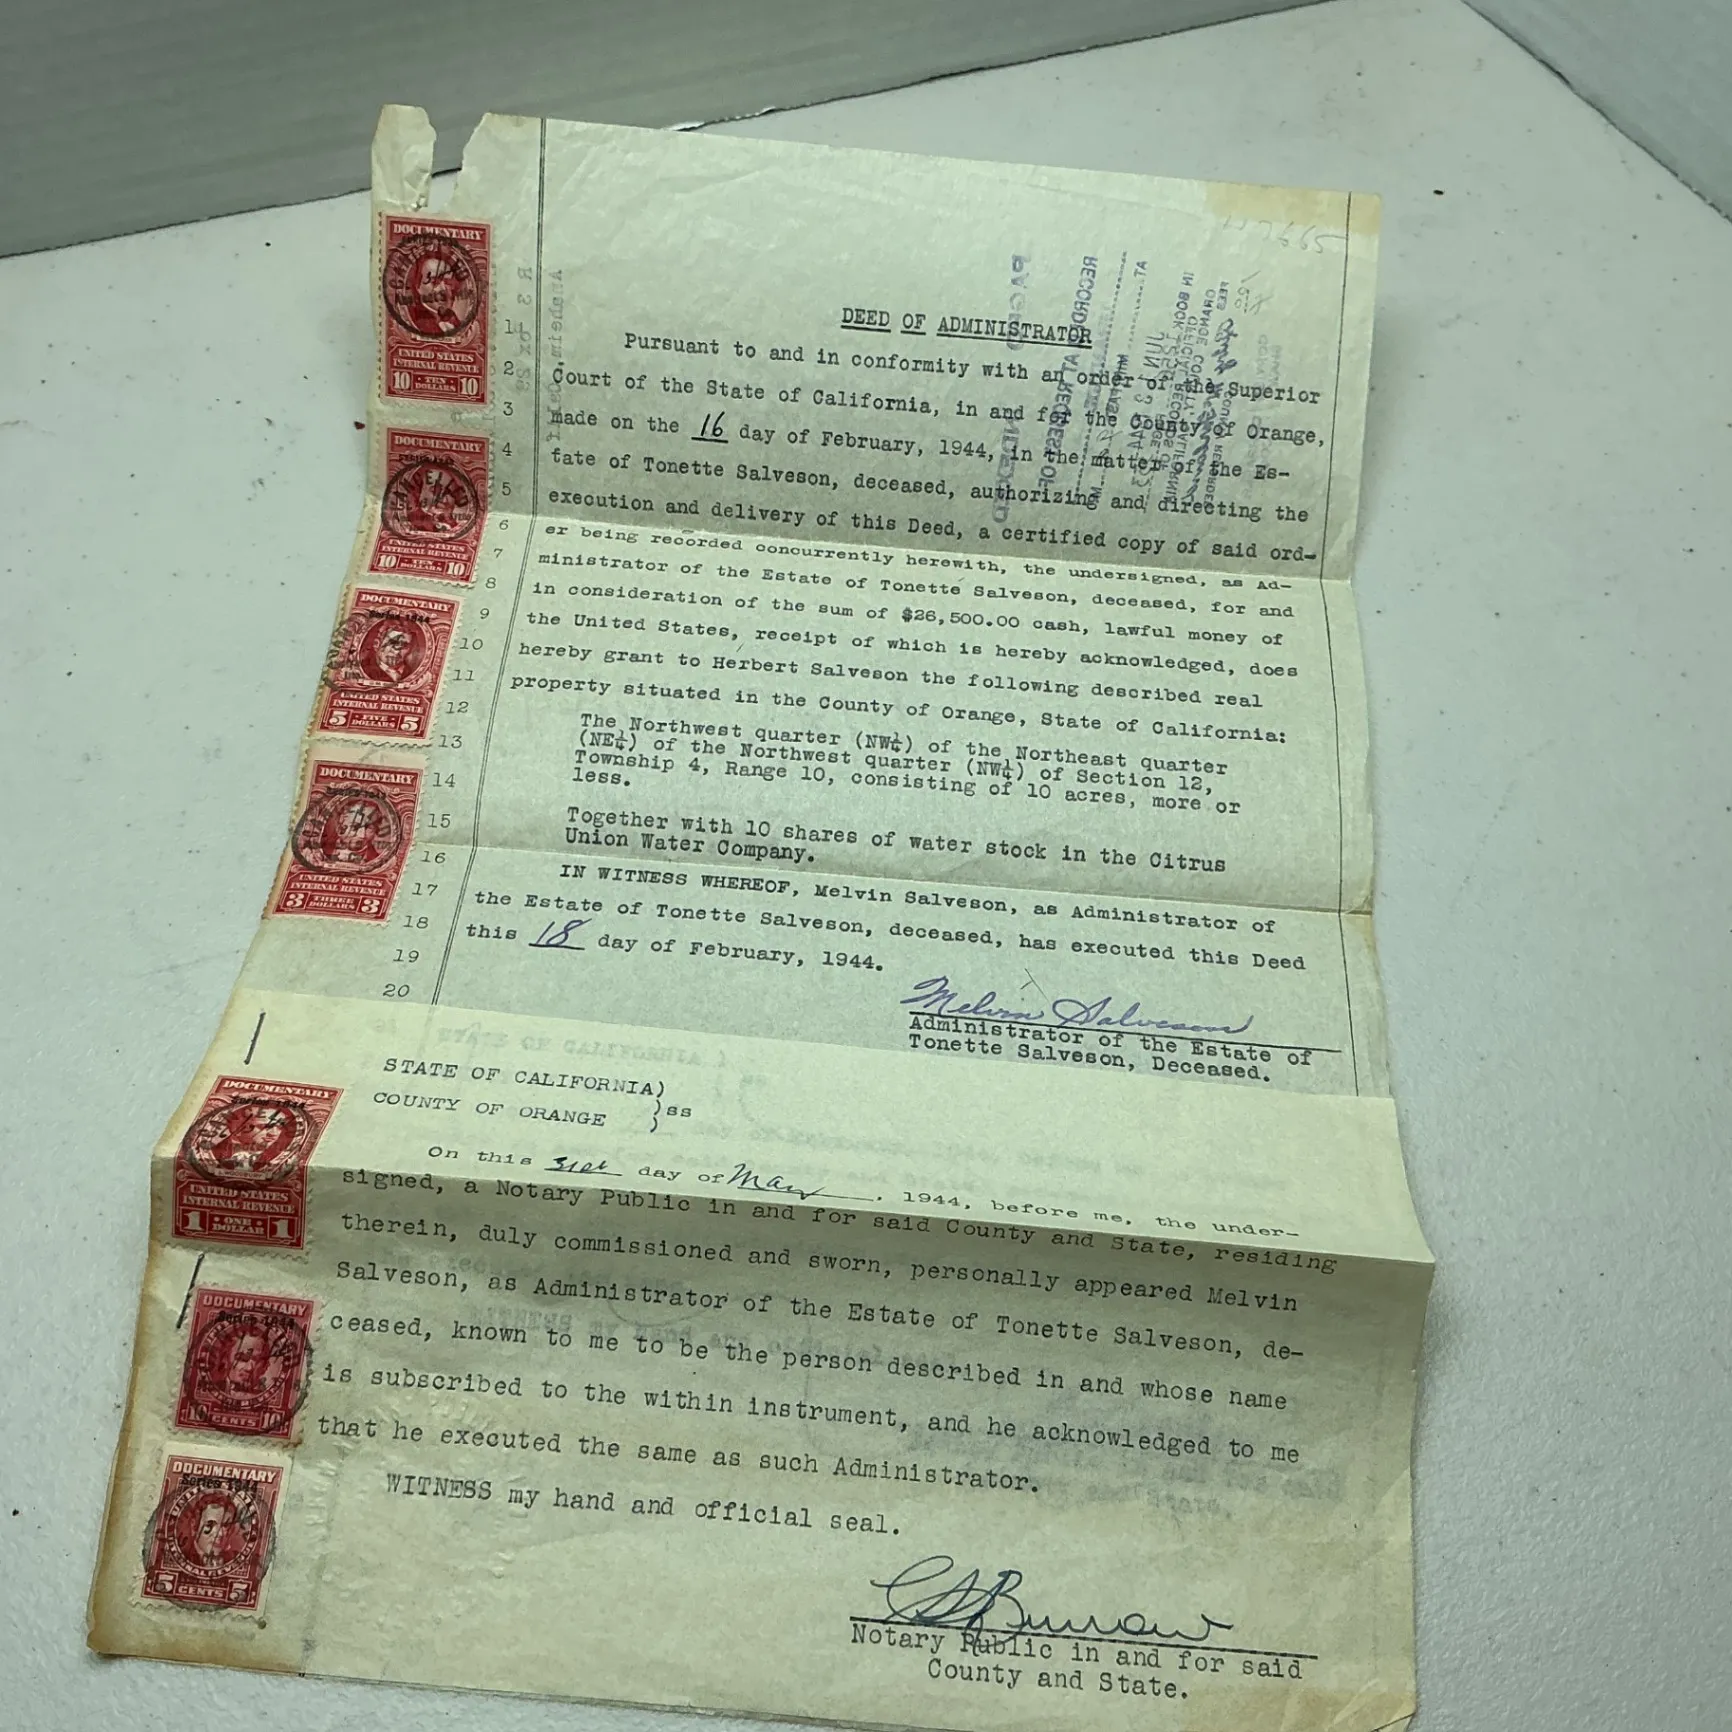 DEED OF ADMINISTRATOR
Pursuant to and in conformity with an order of the Superior
Court of the State of California, in and for the County of Orange,
made on the 16 day of February, 1944, in the matter of the Es-
tate of Tonette Salveson, deceased, authorizing and directing the
execution and delivery of this Deed, a certified copy of said ord-
er being recorded concurrently herewith, the undersigned, as Ad-
ministrator of the Estate of Tonette Salveson, deceased, for and
in consideration of the sum of $26,500.00 cash, lawful money of
the United States, receipt of which is hereby acknowledged, does
hereby grant to Herbert Salveson the following described real
property situated in the County of Orange, State of California:
The Northwest quarter (NW¼) of the Northeast quarter
(NE¼) of the Northwest quarter (NW¼) of Section 12,
Township 4, Range 10, consisting of 10 acres, more or
less.
Together with 10 shares of water stock in the Citrus
Union Water Company.
IN WITNESS WHEREOF, Melvin Salveson, as Administrator of
the Estate of Tonette Salveson, deceased, has executed this Deed
this 18 day of February, 1944.
Melvin Salveson
Administrator of the Estate of
Tonette Salveson, Deceased.
STATE OF CALIFORNIA)
)ss
COUNTY OF ORANGE )
On this 31st day of May, 1944, before me, the under-
signed, a Notary Public in and for said County and State, residing
therein, duly commissioned and sworn, personally appeared Melvin
Salveson, as Administrator of the Estate of Tonette Salveson, de-
ceased, known to me to be the person described in and whose name
is subscribed to the within instrument, and he acknowledged to me
that he executed the same as such Administrator.
WITNESS my hand and official seal.
Burrow
Notary Public in and for said
County and State.
1
2
3
4
5
6
7
8
9
10
11
12
13
14
15
16
17
18
19
20
DOCUMENTARY
CANCELLED
UNITED STATES
INTERNAL REVENUE
10 TEN DOLLARS 10
DOCUMENTARY
CANCELLED
UNITED STATES
INTERNAL REVENUE
10 TEN DOLLARS 10
DOCUMENTARY
Series 1944
UNITED STATES
INTERNAL REVENUE
5 FIVE DOLLARS 5
DOCUMENTARY
Series 1944
CANCELLED
UNITED STATES
INTERNAL REVENUE
3 THREE DOLLARS 3
DOCUMENTARY
Series 1944
UNITED STATES
INTERNAL REVENUE
1 ONE DOLLAR 1
DOCUMENTARY
Series 1944
10 CENTS 10
DOCUMENTARY
Series 1944
5 CENTS 5